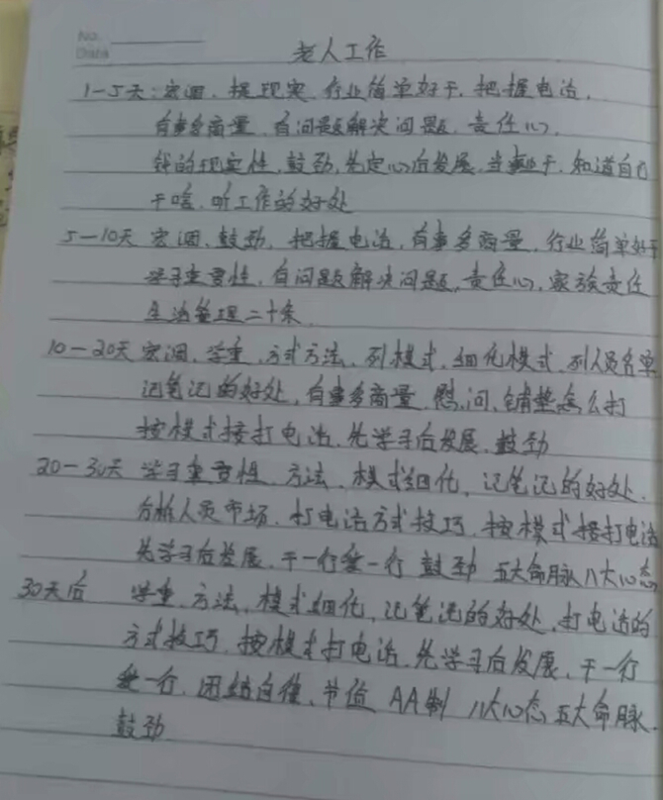 No.
Date
老人工作
1-5天:宏调、提现实、行业简单好干、把握电话、
有事多商量、有问题解决问题、责任心、
钱的现实性、鼓劲、先定心后发展、当事业干、知道自己
干啥、听工作的好处
5-10天 宏调、鼓劲、把握电话、有事多商量、行业简单好干
学习重要性、有问题解决问题、责任心、家族责任
生活管理二十条
10-20天 宏调、学重、方式方法、列模式、细化模式、列人员名单
记笔记的好处、有事多商量、慰、问、铺垫怎么打
按模式接打电话、先学习后发展、鼓劲
20-30天 学习重要性、方法、模式细化、记笔记的好处、
分析人员市场、打电话方式技巧、按模式接打电话
先学习后发展、干一行爱一行 鼓劲 五大命脉八大心态
30天后 学重、方法、模式细化、记笔记的好处、打电话的
方式技巧、按模式打电话、先学习后发展、干一行
爱一行、团结自律、节俭 AA制 八大心态 五大命脉、
鼓劲